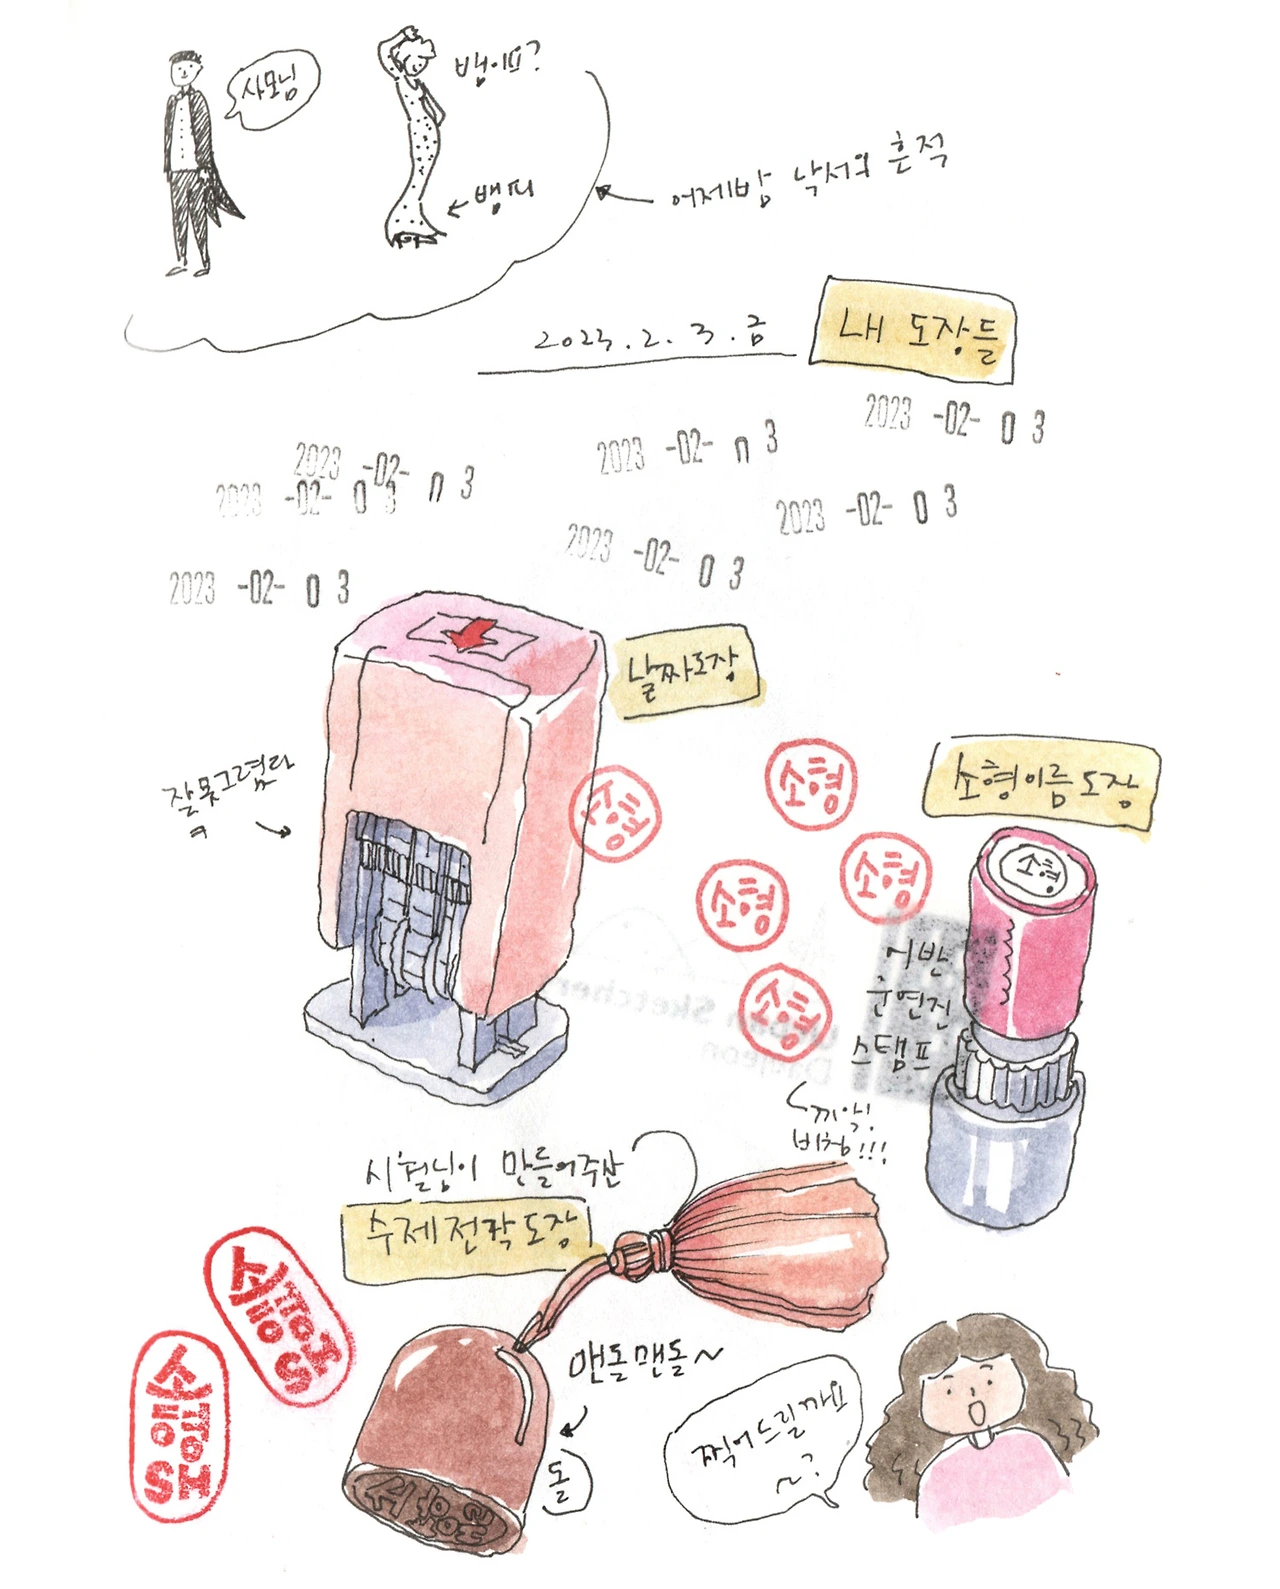 사모님
뱀이프?
뱀피
어제밤 낙서의 흔적
2023.2.3.금
내 도장들
2023 -02- 03
2023 -02- 03
2023 -02- 03
2023 -02- 03
2023 -02- 03
2023 -02- 03
2023 -02- 03
날짜도장
잘못그렸다
소형
소형
소형
소형
소형
소형이름도장
소형
어반
운연진
스탬프
꺄악!
비쳠!!!
Urban Sketchers
Daejeon
시월님이 만들어주신
수제전각도장
소형
SH
소형
SH
맨돌맨돌~
돌
찍어드릴까요
~?